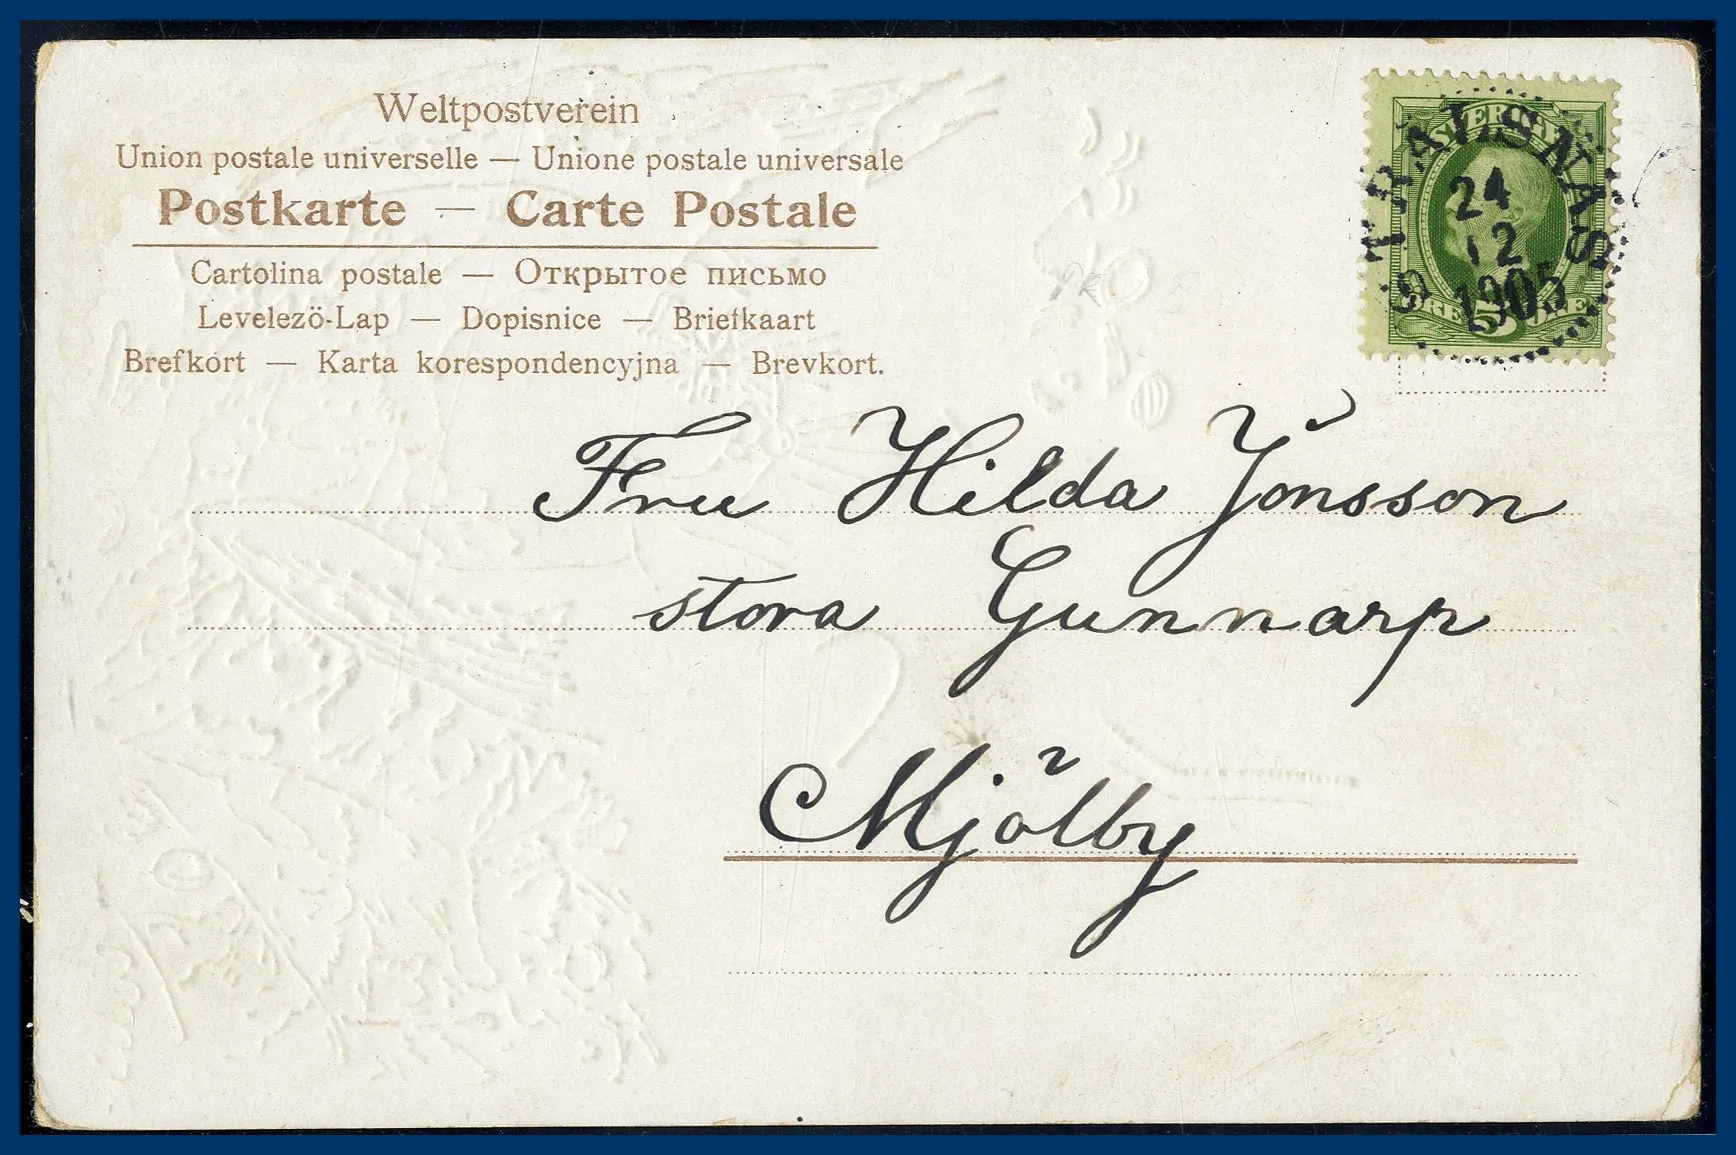 Weltpostverein
Union postale universelle — Unione postale universale
Postkarte — Carte Postale
Cartolina postale — Открытое письмо
Levelezö-Lap — Dopisnice — Briefkaart
Brefkort — Karta korespondencyjna — Brevkort.
SVERIGE
STRALSNÄS
24
12
1905
5 ÖRE
Fru Hilda Jönsson
stora Gunnarp
Mjölby